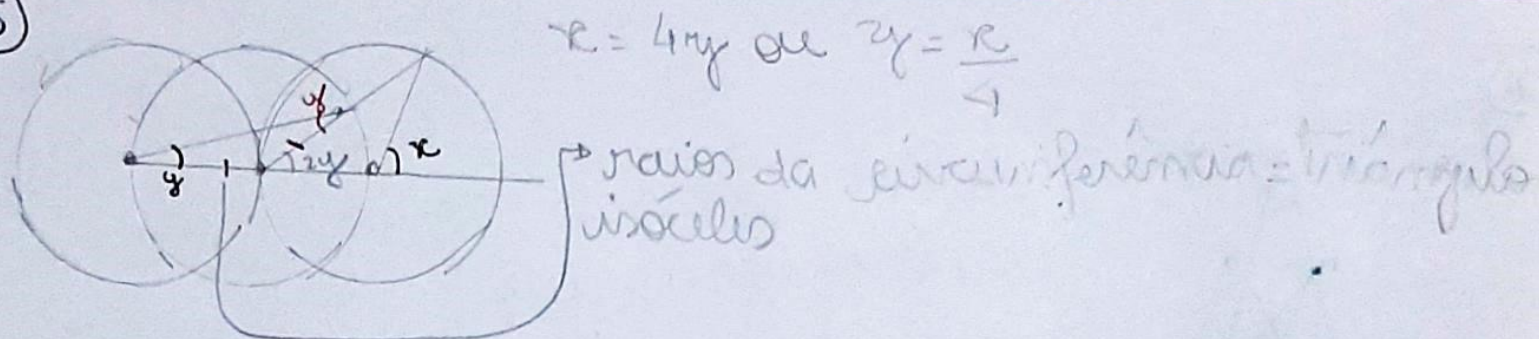 x = 4y ou y = x/4
y
y
2y
x
raios da circunferência = triângulo
isóceles